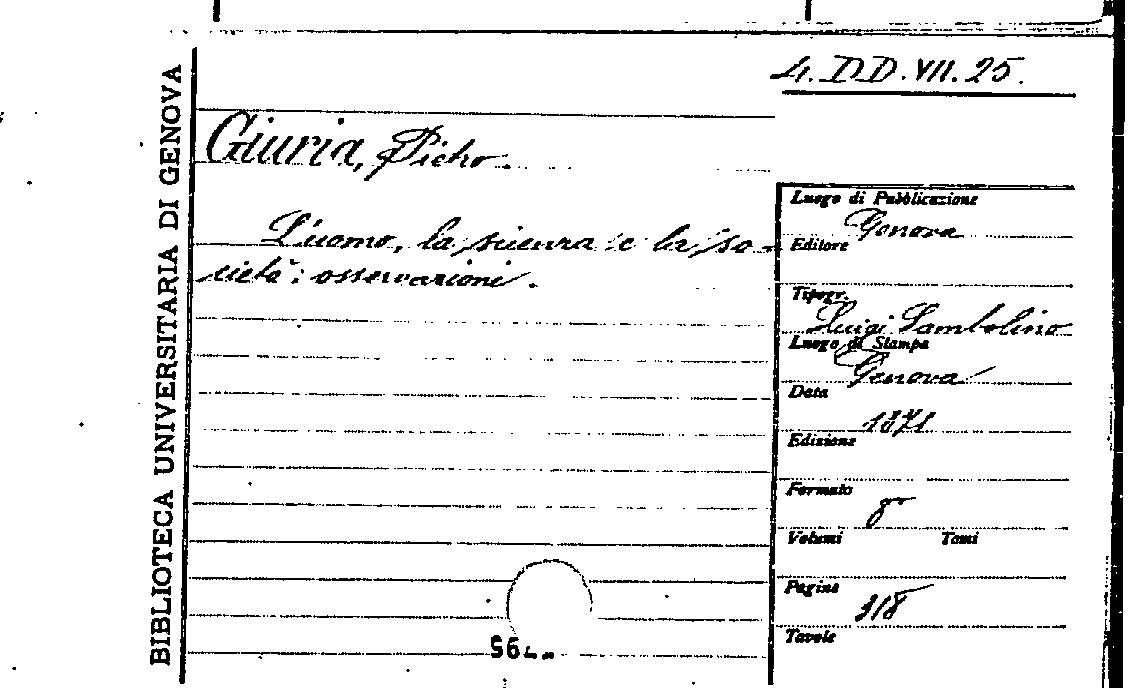 BIBLIOTECA UNIVERSITARIA DI GENOVA
4. DD. VII. 25.
Giuria, Pietro.
L'uomo, la scienza e la so-
cietà: osservazioni.
Luogo di Pubblicazione
Genova
Editore
Tipogr.
Luigi Sambolino
Luogo di Stampa
Genova
Data
1871
Edizione
Formato
8°
Volumi Tomi
Pagine
318
Tavole